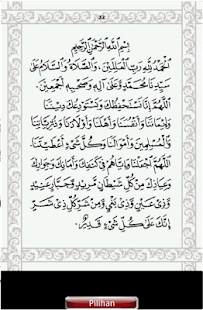 22
بِسْمِ اللَّهِ الرَّحْمَنِ الرَّحِيمِ
اَلْحَمْدُ لِلَّهِ رَبِّ الْعَالَمِيْنَ، وَالصَّلَاةُ وَالسَّلَامُ عَلَى
سَيِّدِنَا مُحَمَّدٍ وَعَلَى آلِهِ وَصَحْبِهِ أَجْمَعِيْنَ.
اَللَّهُمَّ إِنَّا نَسْتَحْفِظُكَ وَنَسْتَوْدِعُكَ دِيْنَنَا
وَأَنْفُسَنَا وَأَهْلَنَا وَأَوْلَادَنَا
وَأَمْوَالَنَا وَكُلَّ شَيْءٍ أَعْطَيْتَنَا.
اَللَّهُمَّ اجْعَلْنَا وَإِيَّاهُمْ فِي كَنَفِكَ وَأَمَانِكَ وَجِوَارِكَ
وَعِيَاذِكَ مِنْ كُلِّ شَيْطَانٍ مَرِيْدٍ وَجَبَّارٍ عَنِيْدٍ
وَذِيْ عَيْنٍ وَذِيْ بَغْيٍ وَمِنْ شَرِّ كُلِّ ذِيْ شَرٍّ
إِنَّكَ عَلَى كُلِّ شَيْءٍ قَدِيْرٌ.
Pilihan